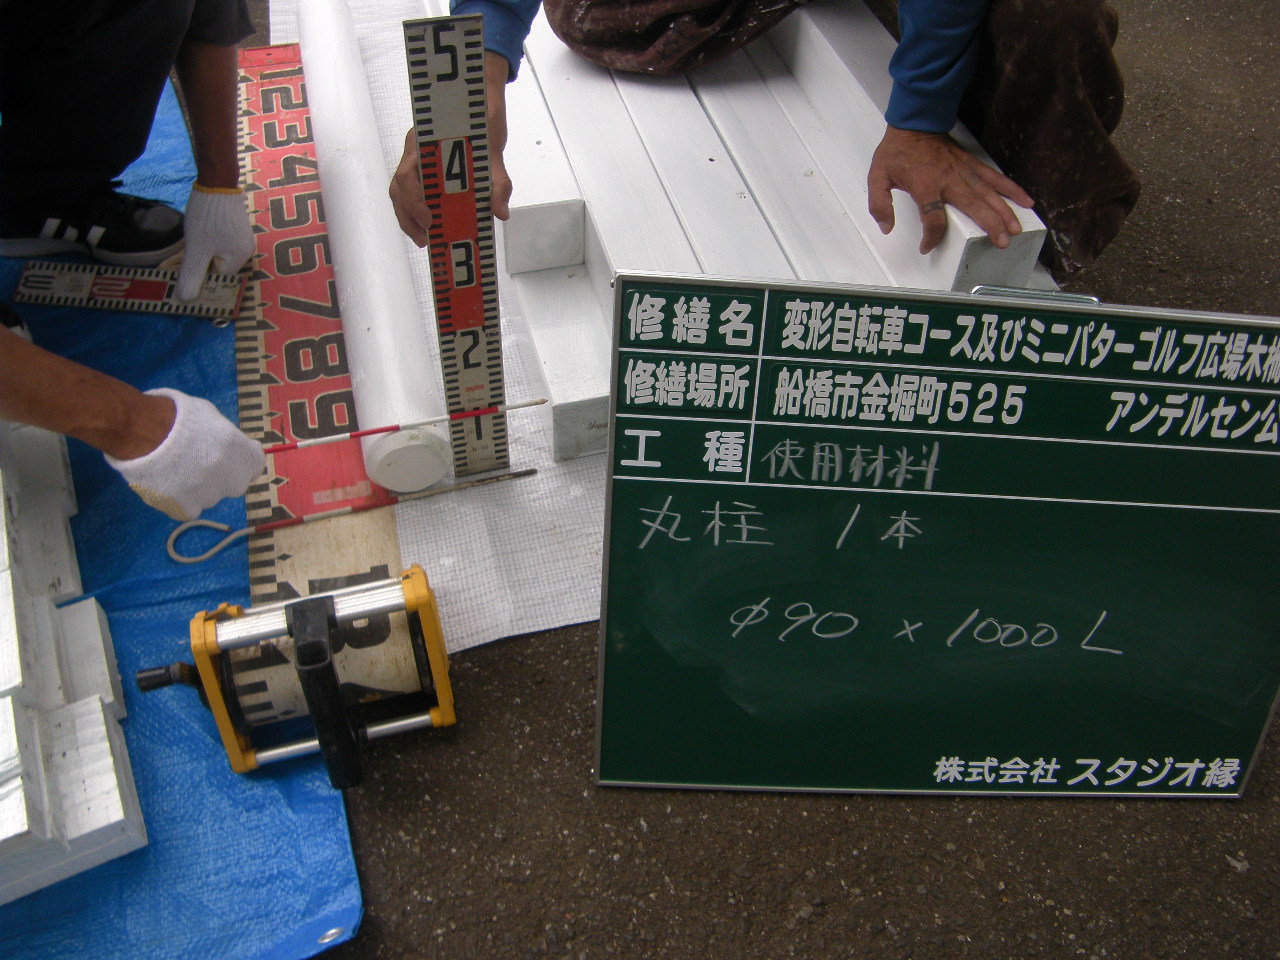 5
4
3
2
1
1 2 3 4 5 6 7 8 9
修繕名 変形自転車コース及びミニパターゴルフ広場木柵
修繕場所 船橋市金堀町525 アンデルセン公
工種 使用材料
丸柱 1本
φ90 × 1000 L
株式会社 スタジオ縁